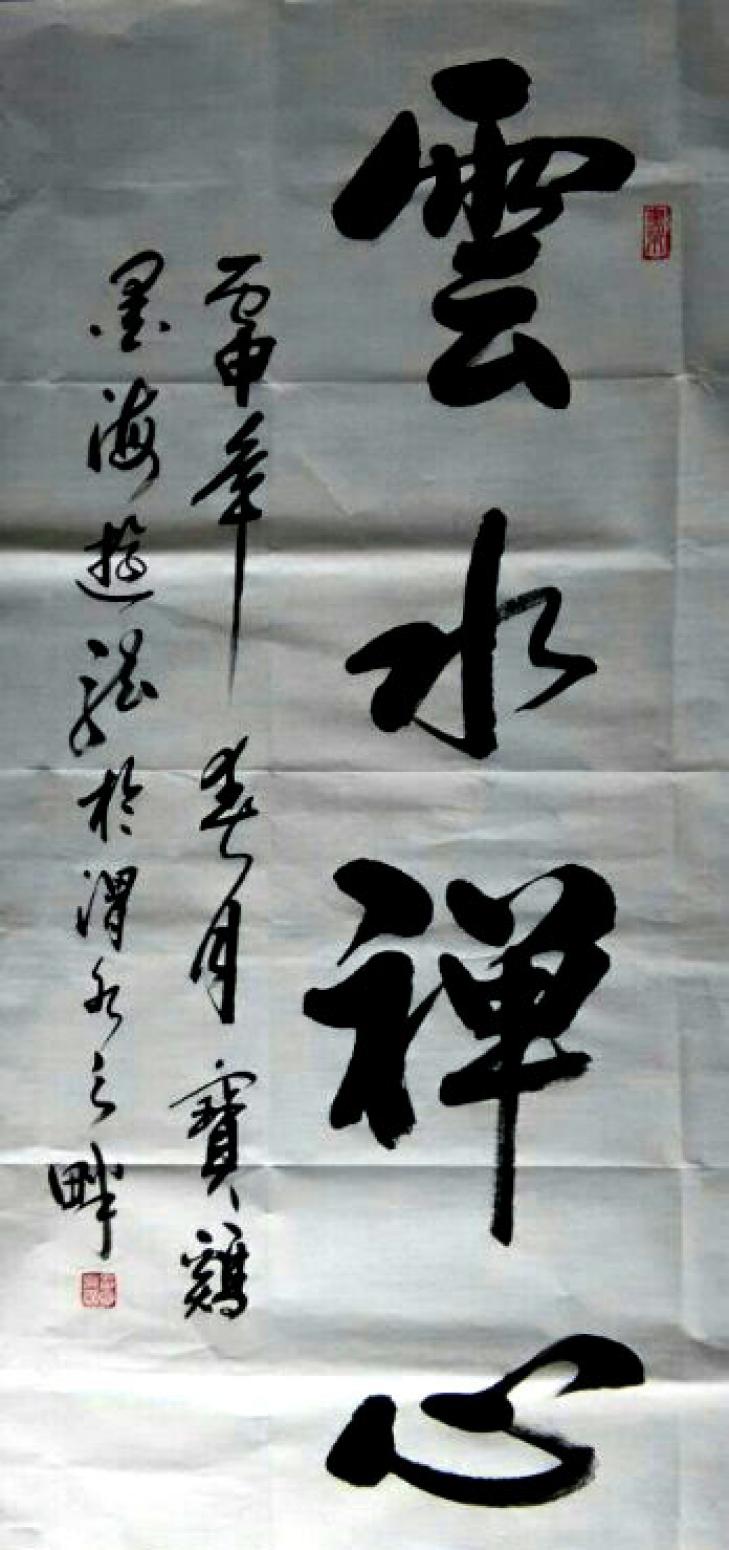 雲水禪心
丙申年春月寶鷄
墨海遊龍於渭水之畔